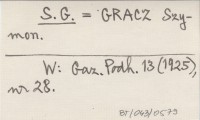 S. G. = GRACZ Szy-
mon.
W: Gaz. Podh. 13 (1925),
nr 28.
BJ/043/0579